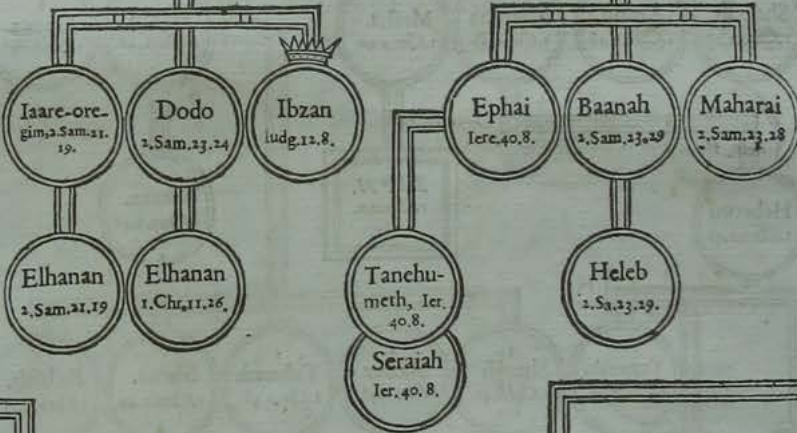 Iaare-ore-
gim,2.Sam.21.
19.
Dodo
2.Sam.23.24
Ibzan
Iudg.12.8.
Ephai
Iere.40.8.
Baanah
2.Sam.23.29
Maharai
2.Sam.23.28
Elhanan
2.Sam.21.19
Elhanan
1.Chr.11.26.
Tanehu-
meth, Ier.
40.8.
Heleb
2.Sa.23.29.
Seraiah
Ier.40.8.